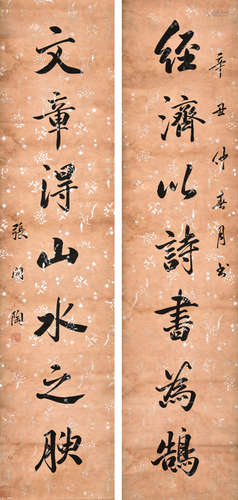 辛丑仲春月書
經濟以詩書為鵠
文章得山水之腴
張問陶